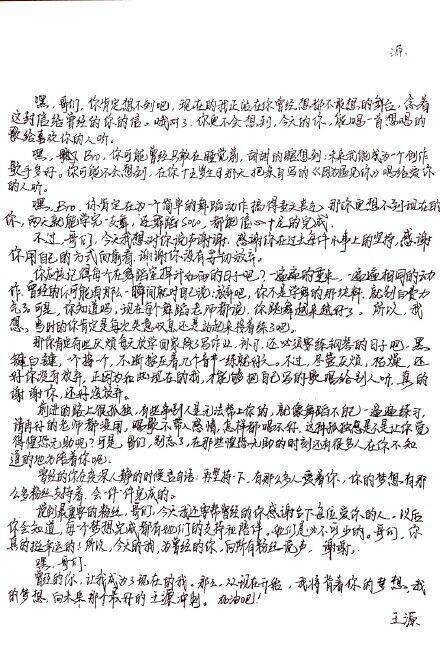 源：
嘿，哥们，你肯定想不到吧，现在的我正站在你曾经想都不敢想的舞台，念着
这封信给曾经的你的信。哦对了，你更不会想到，今天的你，能唱一首想唱的
歌给喜欢你的人听。
嘿，Bro，你可能曾经只敢在睡觉前，偷偷的瞎想到：未来我能成为一个创作
歌手多好。你可能不会想到，在你十五岁生日那天把亲自写的《因为遇见你》唱给爱你
的人听。
嘿，Bro，你肯定在为个简单的舞蹈动作
那你更想不到现在的
你，两天就能学完一支舞，还舞蹈solo，都能信心十足的完成。
不过，哥们，今天我想对你说声谢谢，感谢你在过去每件小事上的坚持，感谢
你用自己的方式向前看，谢谢你没有轻切放弃。
你应该记得每个在舞蹈室挥汗如雨的日子吧？一遍遍的重来，一遍遍相同的动
作，曾经的你可能有那么一瞬间就对自己说：放弃吧，你不是学舞的那块料，就别白费力
气了。可是，你知道吗，现在每个舞蹈老师都说，你跳舞越来越好了。所以，我
想，当时的你肯定是每次失意叹息还是站起来撑着练了吧。
那你肯定有些厌烦每天放学回家除了写作业，外方，还必须要练钢琴的日子吧。黑
键白键，一个接一个，不断按在着几个音节一练就好久。不过，尽管厌烦，枯燥，还
好你没有放弃，正因为在此现在的我，才能够把自己写的歌唱给别人听，真的
谢谢你，还好没放弃。
前进的路上很孤独，有些事别人是无法帮上你的，就像舞蹈不好，一遍遍练习，
请再好的老师都没用，唱歌不带入感情，怎样都唱不好。这种孤独感是不是让你觉
得惶恐无助吧？可是，哥们，别忘了，在那些惶恐无助的时刻还有很多人在你不知
道的地方陪着你呢。
曾经的你在夜深人静的时候总自语：再坚持一下，有那么多人爱着你，你的梦想，有那
么多粉丝支持着，会一件一件完成的。
说到最重要的粉丝，哥们，今天我还要帮曾经的你感谢台下每位爱你的人。以后
你会知道，每个梦想完成都有他们的支持和陪伴。他们是必不可少的。哥们，你
真的挺幸运的！所以，今天的我，为曾经的你，向所有粉丝说声，谢谢。
嘿，哥们。
曾经的你，让我成为了现在的我。那么，从现在开始，我将背着你的梦想、我
的梦想，向未来那个最好的王源冲刺。加油吧！
王源